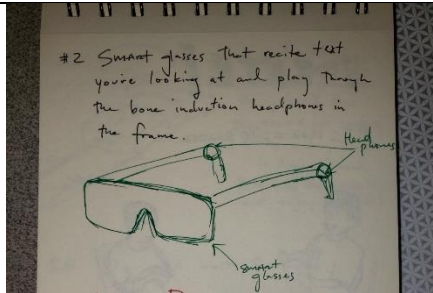 #2 Smart glasses that recite text
you're looking at and play through
the bone induction headphones in
the frame.
Head
phones
smart
glasses